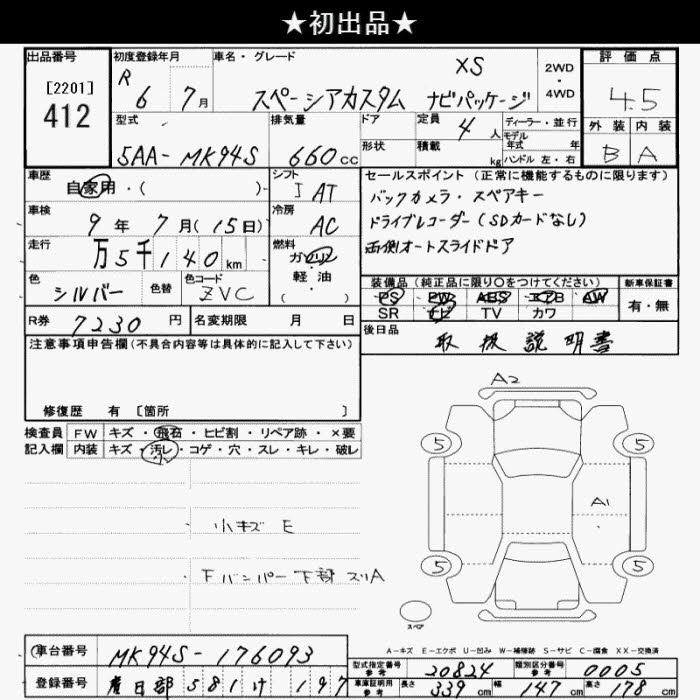 ★初出品★
出品番号
[2201]
412
初度登録年月
R 6 7月
車名・グレード
スペーシアカスタム XS ナビパッケージ
2WD
・
4WD
評価点
4.5
外装 内装
B A
型式
5AA-MK94S
排気量
660cc
ドア
形状
定員 4人
積載 kg
ディーラー・並行
モデル年式 年
ハンドル 左・右
車歴
自家用・( )
シフト
I AT
車検
9年7月(15日)
冷房
AC
走行
万5千140km
燃料
ガソリン
軽・油
( )
色 シルバー
色替
色コード ZVC
R券 7230円
名変期限 月 日
セールスポイント(正常に機能するものに限ります)
バックカメラ・スペアキー
ドライブレコーダー(SDカードなし)
両側オートスライドドア
装備品(純正品に限り〇をつけてください)
PS PW ABS エアB AW
SR ナビ TV カワ
新車保証書
有・無
後日品
取扱説明書
注意事項申告欄(不具合内容等は具体的に記入して下さい)
修復歴 有〔箇所 〕
検査員 FW キズ・飛石・ヒビ割・リペア跡・×要
記入欄 内装 キズ・汚レ・コゲ・穴・スレ・キレ・破レ
小キズ E
Fバンパー下部スリA
A2
5 5
A1
5 5
スペア
A-キズ E-エクボ U-凹み W-補修跡 S-サビ C-腐食 XX-交換済
車台番号 MK94S-176093
登録番号 春日部 581 け 197
型式指定番号 参考 20824
類別区分番号 参考 0005
車庫証明用 参考 長さ 339cm 幅 147cm 高さ 178cm